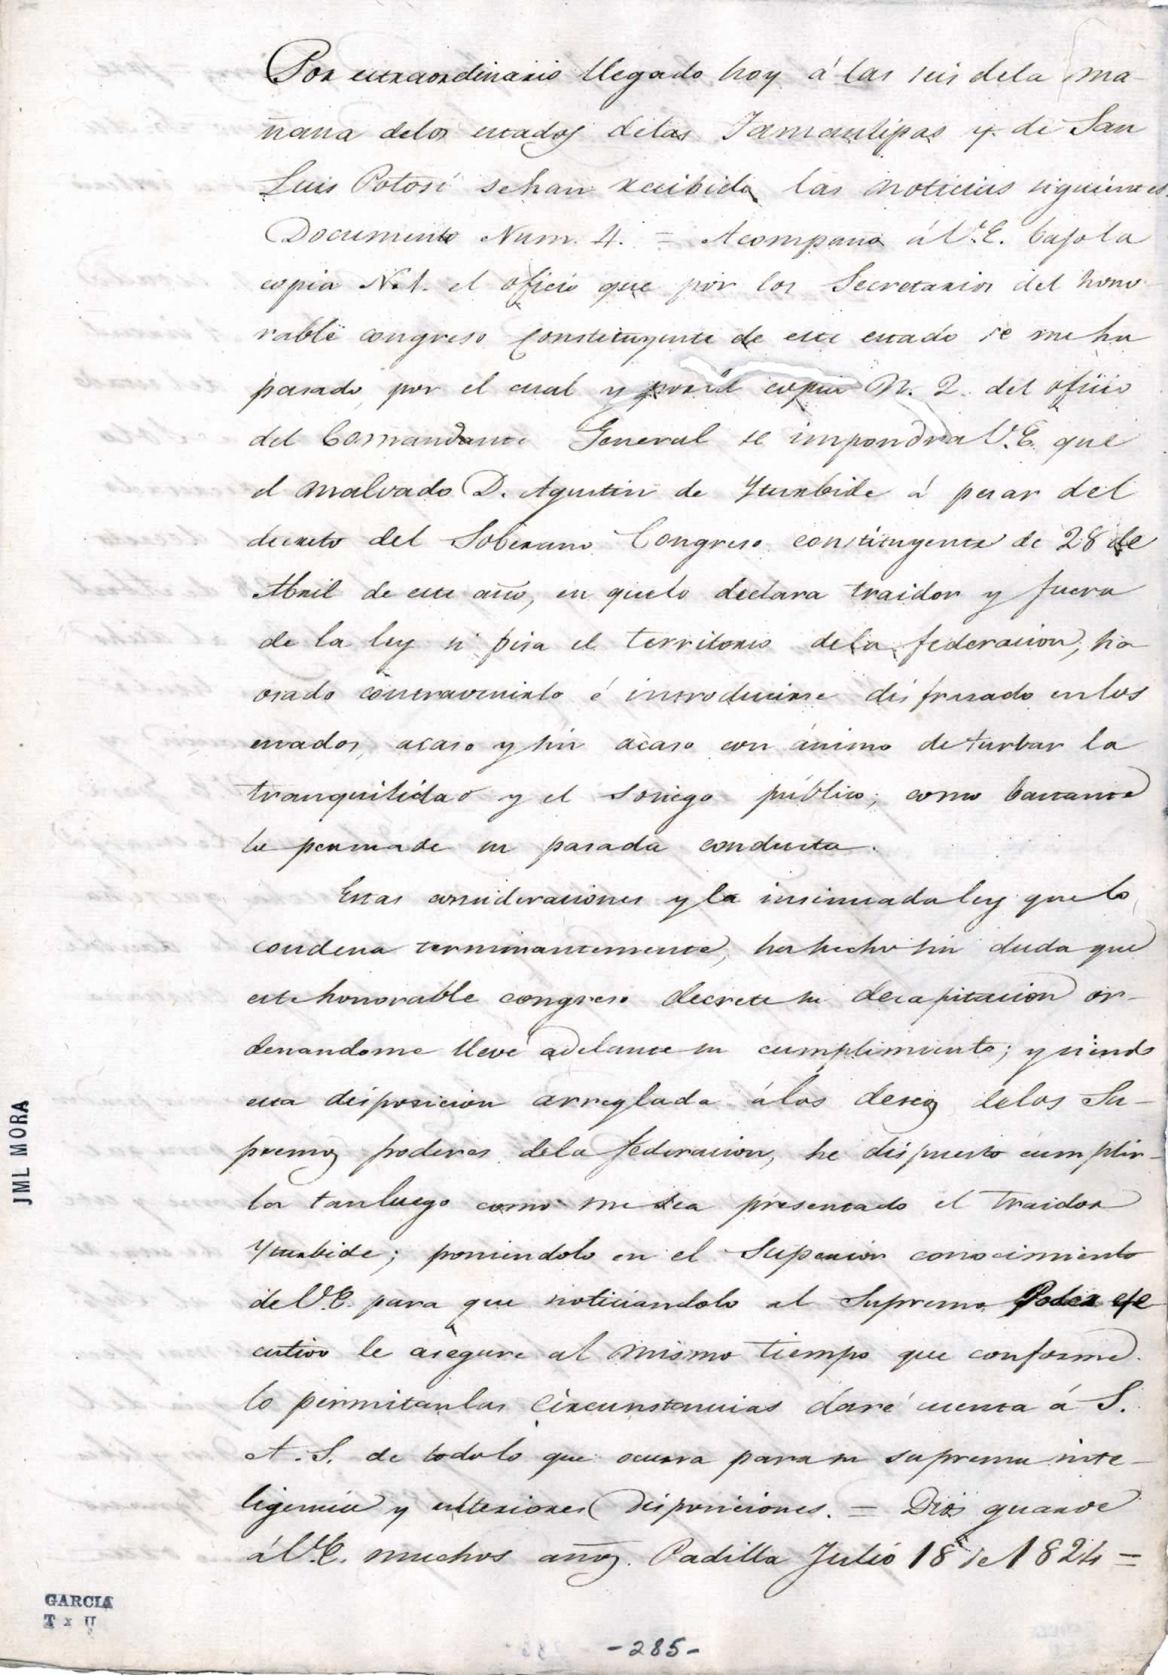 Por extraordinario llegado hoy á las seis dela ma-
ñana delos estados delas Tamaulipas y de San
Luis Potosí sehan recibido las noticias siguientes.
Documento Num. 4. = Acompaño á V.E. bajola
copia N. 1. el oficio que por los Secretarios del hono
rable congreso constituyente de este estado se me ha
pasado, por el cual y por la copia N. 2. del oficio
del Comandante General se impondra V.E. que
el malvado D. Agustin de Yturbide á pesar del
decreto del Soberano Congreso constituyente de 28 de
Abril de este año, en quelo declara traidor y fuera
de la ley si pisa el territorio dela federacion, ha
osado contravenirlo é introducirse disfrasado enlos
estados, acaso y sin acaso con ánimo de turbar la
tranquilidad y el sosiego público; como bastante
lo persuade su pasada conducta.
Estas consideraciones y la insinuada ley que lo
condena terminantemente, ha hecho sin duda que
este honorable congreso decrete su decapitacion or-
denandome lleve adelante su cumplimiento; y siendo
esta disposicion arreglada álos deseos delos Su-
premos poderes dela federacion, he dispuesto cumplir-
la tanluego como me sea presentado el traidor
Yturbide; poniendolo en el Superior conocimiento
de V.E. para que noticiandolo al Supremo Poder eje
cutivo le asegure al mismo tiempo que conforme
lo permitanlas circunstancias daré cuenta á S.
A. S. de todolo que ocurra para su suprema inte-
ligencia y ulteriores disposiciones. = Dios guarde
á V.E. muchos años. Padilla Julio 18 de 1824 =
JML MORA
GARCIA
- 285 -